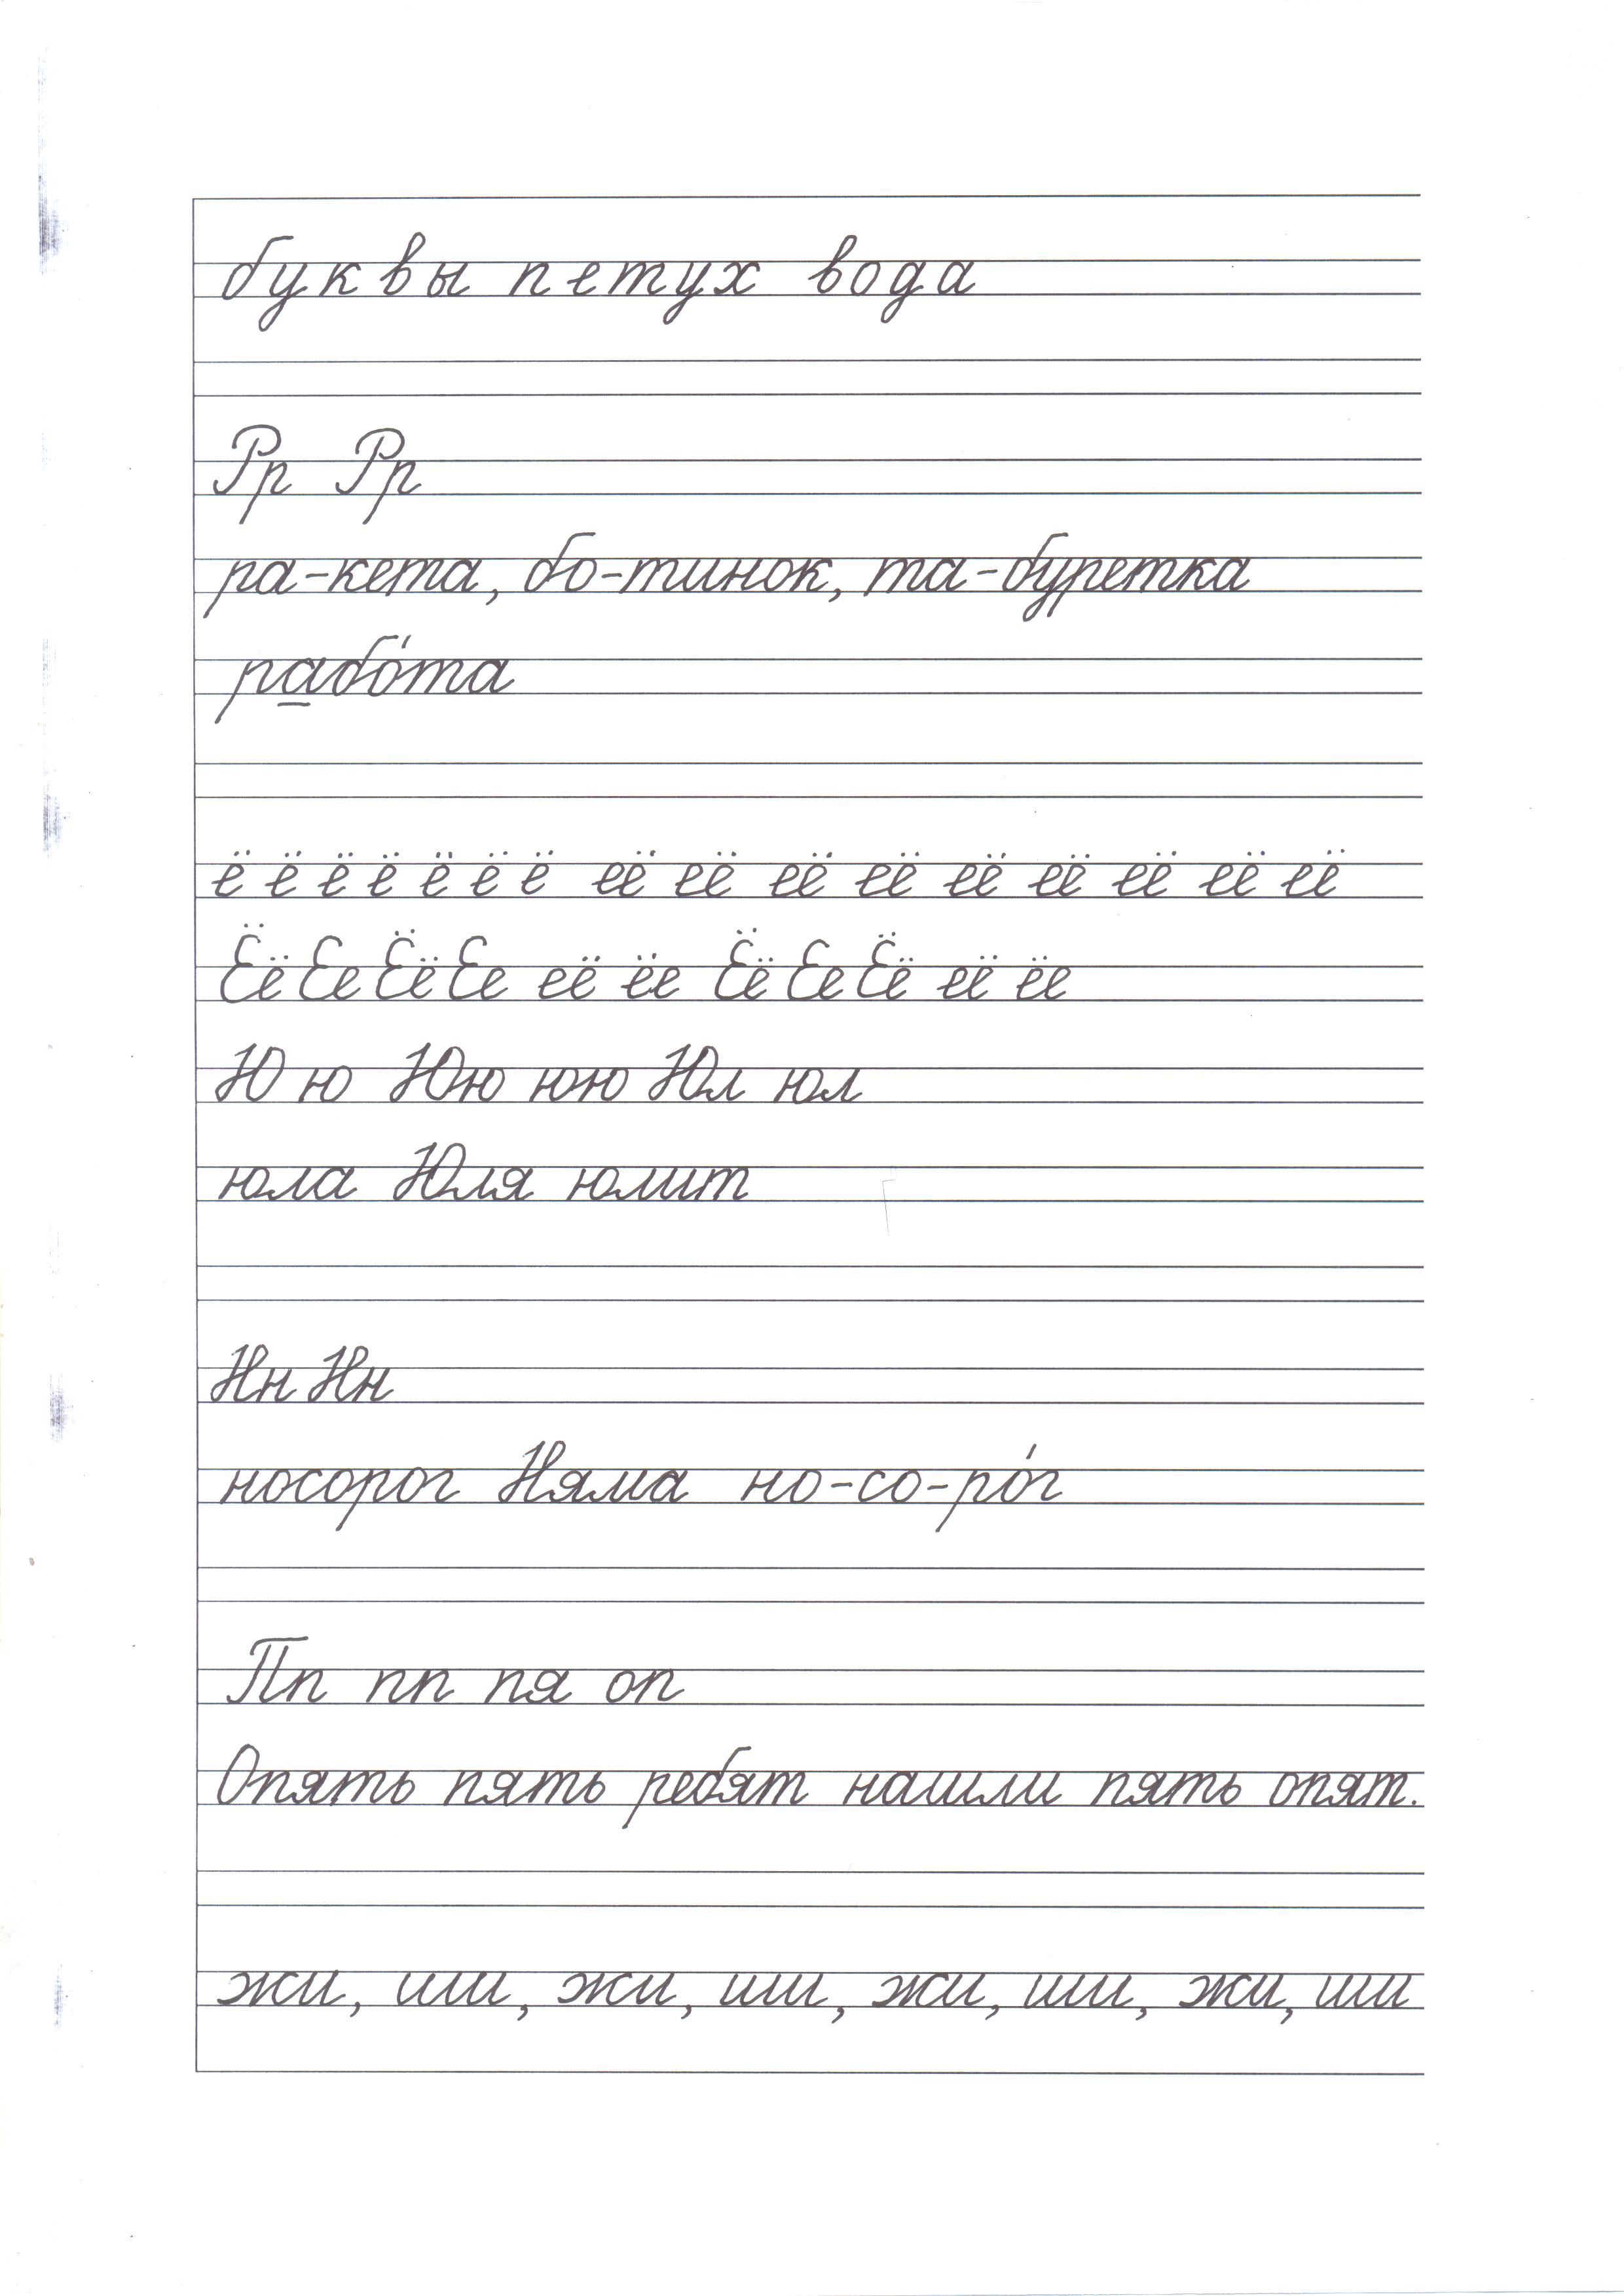 буквы петух вода
Рр Рр
ра-кета, бо-тинок, та-буретка
рабо́та
ё ё ё ё ё ё ё её её её её её её её её её
Ёё Ее Ёё Ее её ёе Ёё Ее Ёё её ёе
Ю ю Юю юю Юл юл
юла Юля юлит
Нн Нн
носорог Няма но-со-ро́г
Пп пп пя оп
Опять пять ребят нашли пять опят.
жи, ши, жи, ши, жи, ши, жи, ши